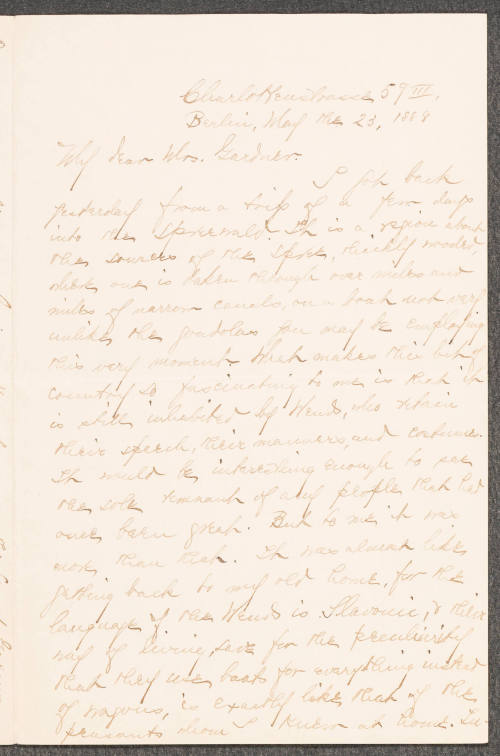 Charlottenstrasse 59 III,
Berlin, May the 23, 1888
My dear Mrs. Gardner.
I got back
yesterday from a trip of a few days
into the Spreewald. It is a region about
the sources of the Spree, thickly wooded,
where one is taken through over miles and
miles of narrow canals, on a boat not very
unlike the gondolas you may be employing
this very moment. What makes this bit of
country so fascinating to me is that it
is still inhabited by Wends, who retain
their speech, their manners, and costumes.
It would be interesting enough to see
the sole remnant of any people that had
once been great. But to me it was
more than that. It was almost like
getting back to my old home, for the
language of the Wends is Slavonic, & their
way of living, save for the peculiarity
that they use boats for everything instead
of wagons, is exactly like that of the
peasants whom I knew at home.